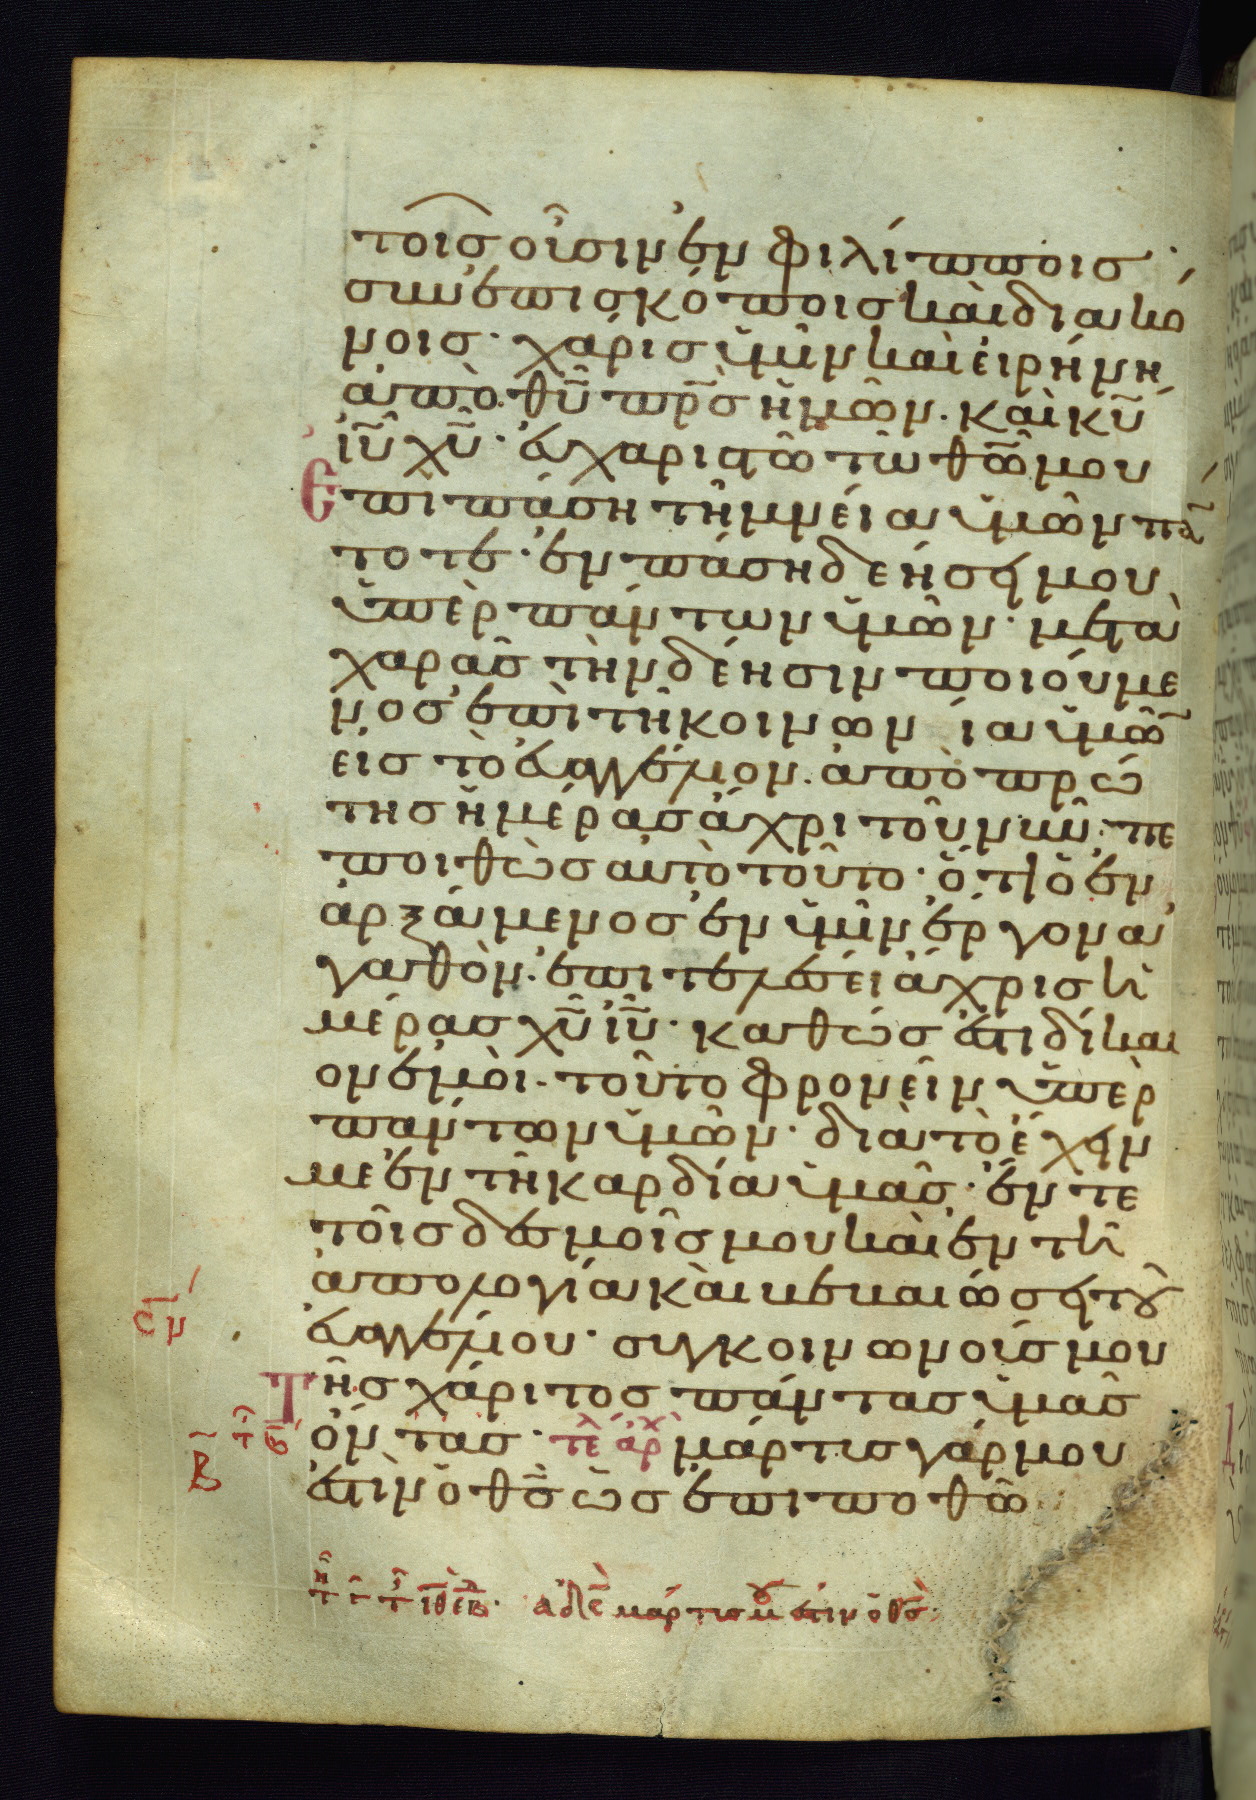 τοῖς οὖσιν ἐν φιλίπποις
σὺν ἐπισκόποις καὶ διακό
νοις· χάρις ὑμῖν καὶ εἰρήνη
ἀπὸ θυ πρς ἡμῶν. καὶ κυ
ιυ χυ· εὐχαριστῶ τῶ θω μου
Ἐπὶ πάση τῆ μνεία ὑμῶν πά
τοτε· ἐν πάση δεήσει μου
ὑπὲρ πάντων ὑμῶν· μετὰ
χαρᾶς τὴν δέησιν ποιούμε
νος ἐπὶ τῆ κοινωνία ὑμῶ
εἰς τὸ εὐαγγέλιον. ἀπὸ πρώ
της ἡμέρας ἄχρι τοῦ νῦν· πε
ποιθὼς αὐτὸ τοῦτο· ὅτι ὁ ἐν
ἀρξάμενος ἐν ὑμῖν ἔργον ἀ
γαθὸν· ἐπιτελέσει ἄχρις ἡ
μέρας χυ ιυ· καθώς ἐστι δίκαι
ον ἐμοὶ· τοῦτο φρονεῖν ὑπὲρ
πάντων ὑμῶν· διὰ τὸ ἔχειν
με ἐν τῆ καρδία ὑμᾶς· ἔν τε
τοῖς δεσμοῖς μου καὶ ἐν τῆ
ἀπολογία καὶ βεβαιώσει τοῦ
εὐαγγελίου· συγκοινωνούς μου
Τῆς χάριτος πάντας ὑμᾶς
ὄντας· τε αρχ μάρτυς γάρ μου
ἐστὶν ὁ θς ὡς ἐπιποθῶ
Β
ἀδε μάρτυς μου ἐστιν ὁ θς·